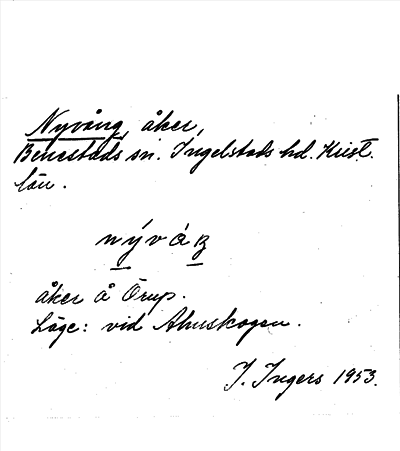 Nyvång, åker,
Benestads sn. Ingelstads hd. Krist.
län.
nývåŋ
åker å Örup.
Läge: vid Ahuskogen.
I. Ingers 1953.